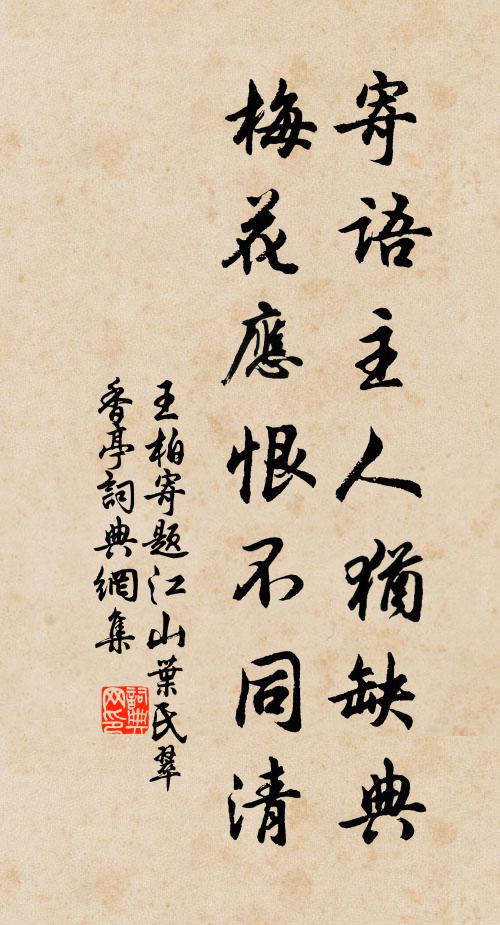 寄語主人猶缺典
梅花應恨不同清
王柏寄題江山葉氏翠
香亭詞典網集
詞典网印